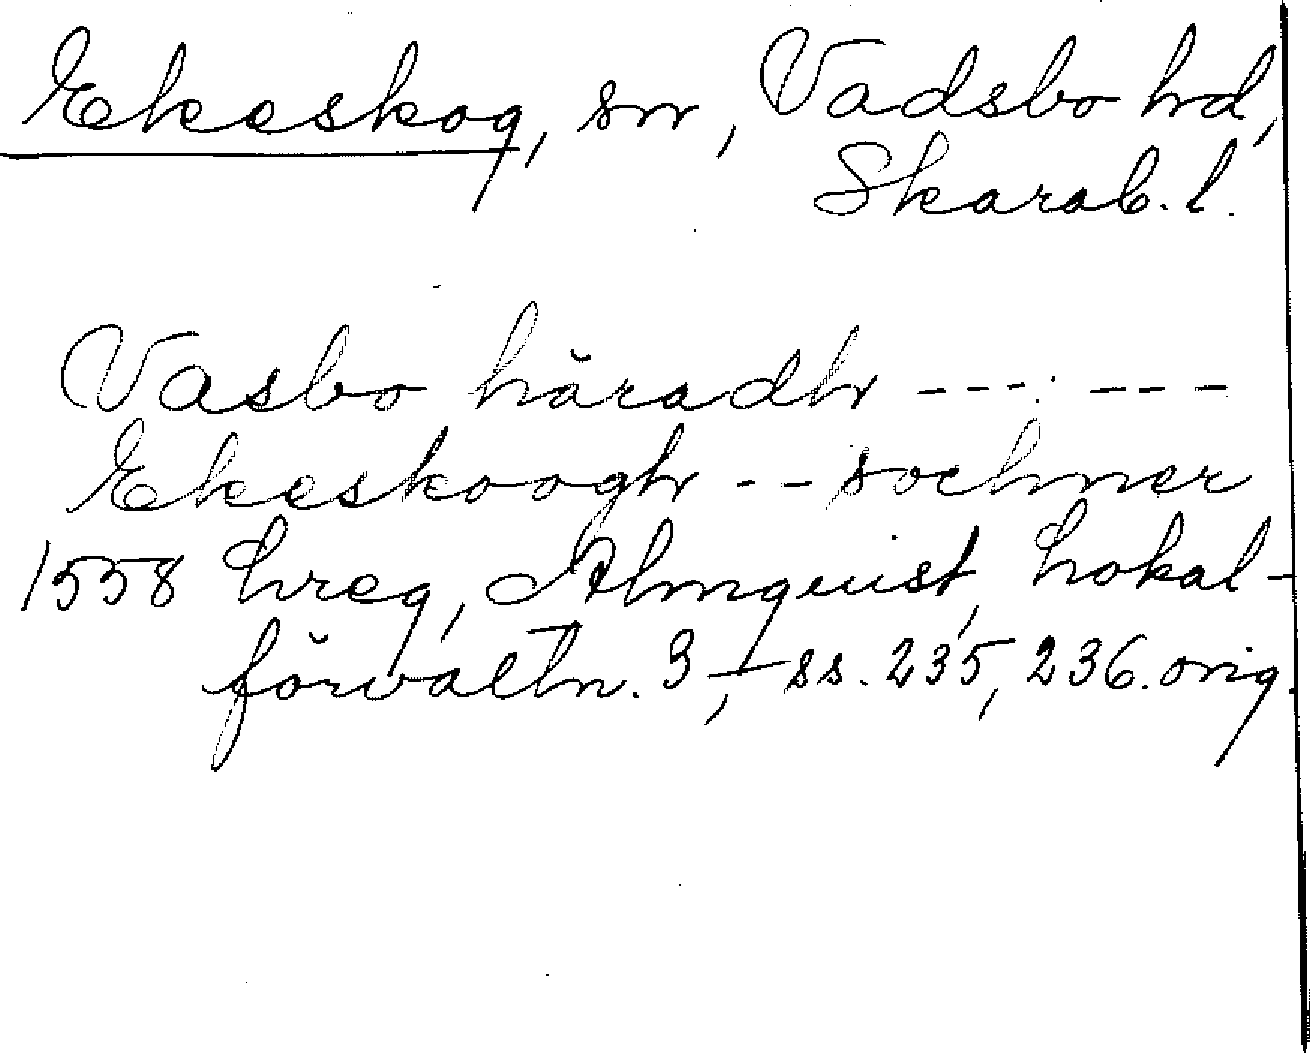 Ekeskog, sn, Vadsbo hd,
Skarab. l.
Vasbo häradh --- ---
Ekeskoogh -- sochner
1558 hreg, Almquist, Lokal-
förvaltn. 3, ss. 235, 236. orig.